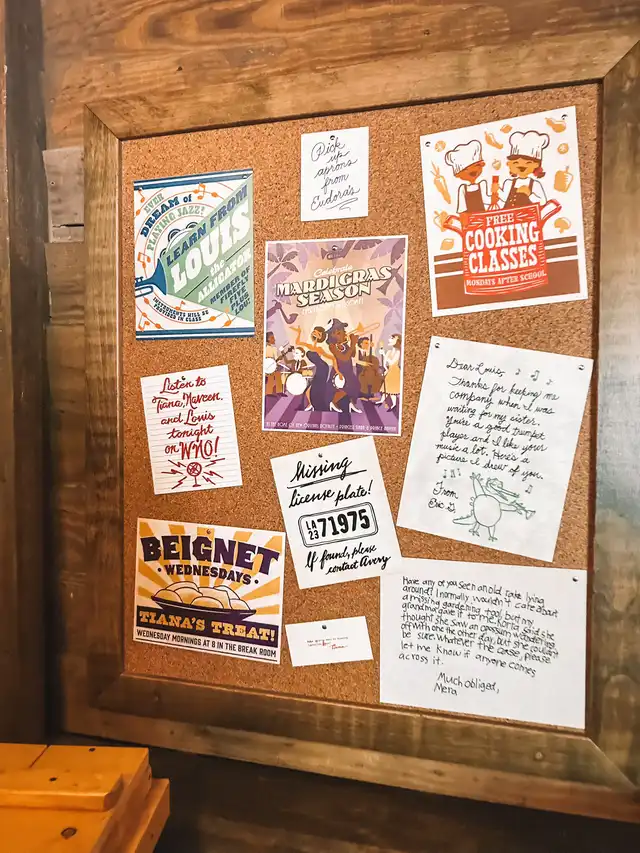 Pick
up
aprons
from
Eudora's
EVER
DREAM of
PLAYING JAZZ?
LEARN FROM
LOUIS
the
ALLIGATOR
MEMBER OF
FIREFLY
FIVE
PLUS LOU!
INSTRUMENTS WILL BE
PROVIDED IN CLASS
FREE
COOKING
CLASSES
MONDAYS AFTER SCHOOL
Celebrate
MARDI GRAS
SEASON
Listen to
Tiana, Naveen,
and Louis
tonight
on WNO!
Dear Louis,
Thanks for keeping me
company when I was
waiting for my sister.
You're a good trumpet
player and I like your
music a lot. Here's a
picture I drew of you.
From
Eric D.
Missing
license plate!
LA
23
71975
If found, please
contact Avery
BEIGNET
WEDNESDAYS
TIANA'S TREAT!
WEDNESDAY MORNINGS AT 8 IN THE BREAK ROOM
Have any of you seen an old rake lying
around? I normally wouldn't care about
a missing gardening tool, but my
grandma gave it to me. Koria said she
thought she saw an opossum wandering
off with one the other day, but she couldn't
be sure. Whatever the case, please
let me know if anyone comes
across it.
Much obliged,
Mera